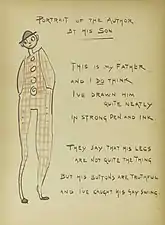 PORTRAIT OF THE AUTHOR
BY HIS SON
THIS IS MY FATHER
AND I DO THINK
I'VE DRAWN HIM
QUITE NEATLY
IN STRONG PEN AND INK.
THEY SAY THAT HIS LEGS
ARE NOT QUITE THE THING
BUT HIS BUTTONS ARE TRUTHFUL
AND I'VE CAUGHT HIS GAY SWING.